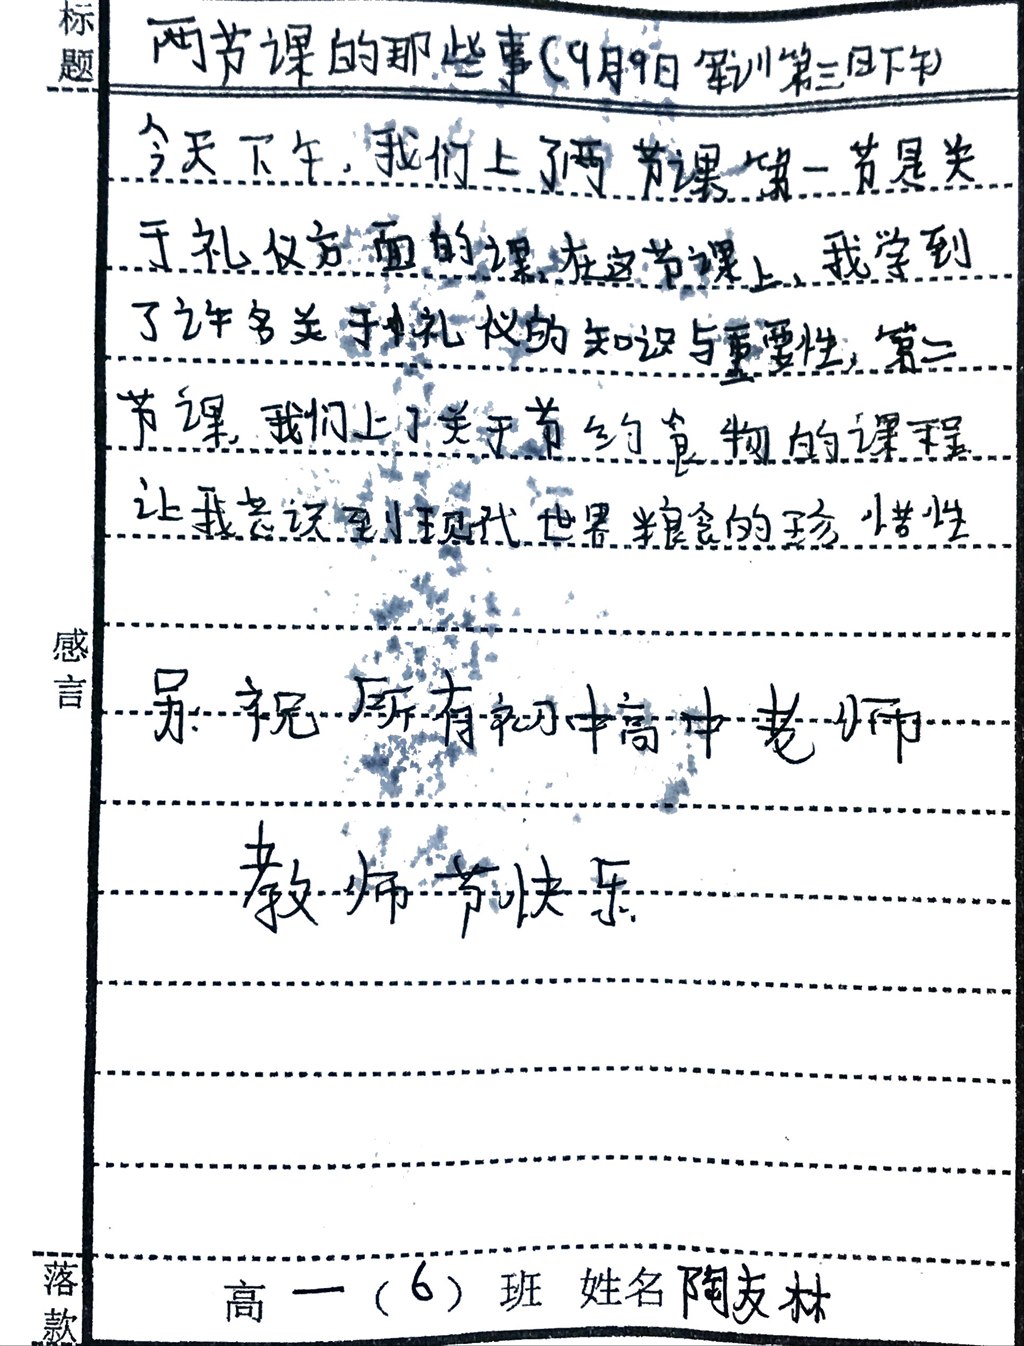 标题
两节课的那些事(9月9日 军训第三日下午)
今天下午,我们上了两节课,第一节是关
于礼仪方面的课,在这节课上,我学到
了许多关于礼仪的知识与重要性,第二
节课,我们上了关于节约食物的课程
让我意识到现代世界粮食的珍惜性
感言
另:祝所有初中高中老师
教师节快乐
落款
高一(6)班 姓名陶友林